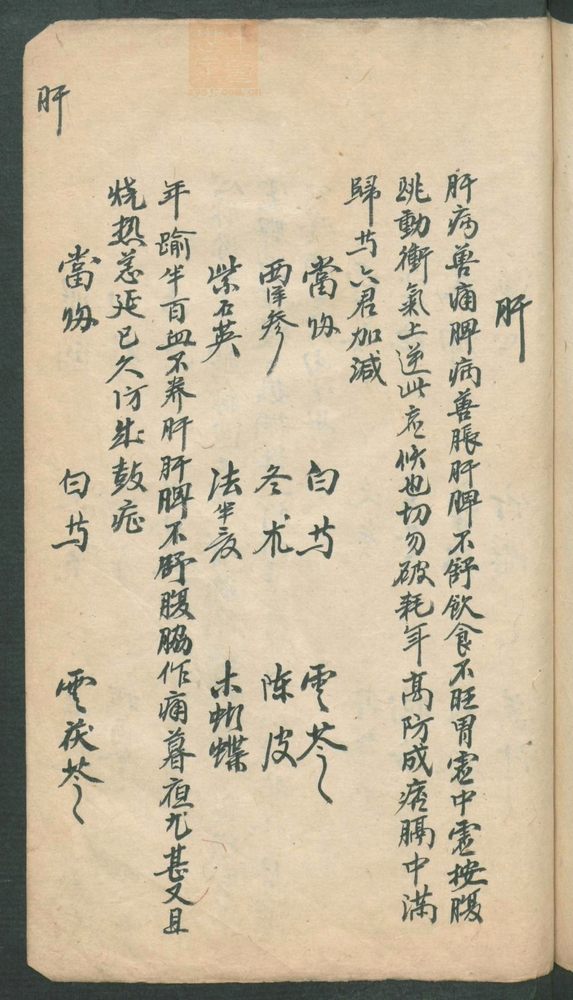 肝
肝病善痛脾病善脹肝脾不舒飲食不旺胃虛中虛按腹
跳動衝氣上逆此症候也切勿破耗年高防成痞膈中滿
歸芍六君加減
當归 白芍 雲苓
西洋參 冬朮 陳皮
紫石英 法半夏 木蝴蝶
年踰半百血不养肝肝脾不舒腹脇作痛暮夜尤甚又且
烧热恙延已久防成鼓症
當归 白芍 雲茯苓
肝